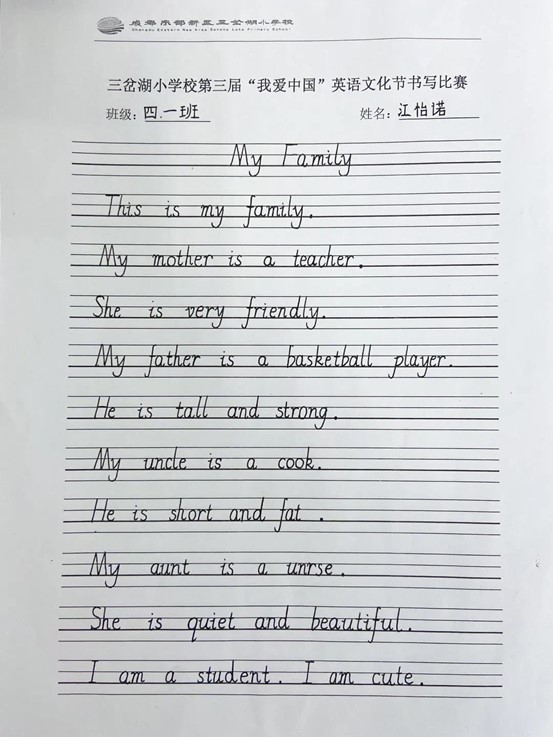 成都东部新区三岔湖小学校
Chengdu Eastern New Area Sancha Lake Primary School
三岔湖小学校第三届“我爱中国”英语文化节书写比赛
班级：四.一班 姓名：江怡诺
My Family
This is my family.
My mother is a teacher.
She is very friendly.
My father is a basketball player.
He is tall and strong.
My uncle is a cook.
He is short and fat .
My aunt is a unrse.
She is quiet and beautiful.
I am a student. I am cute.